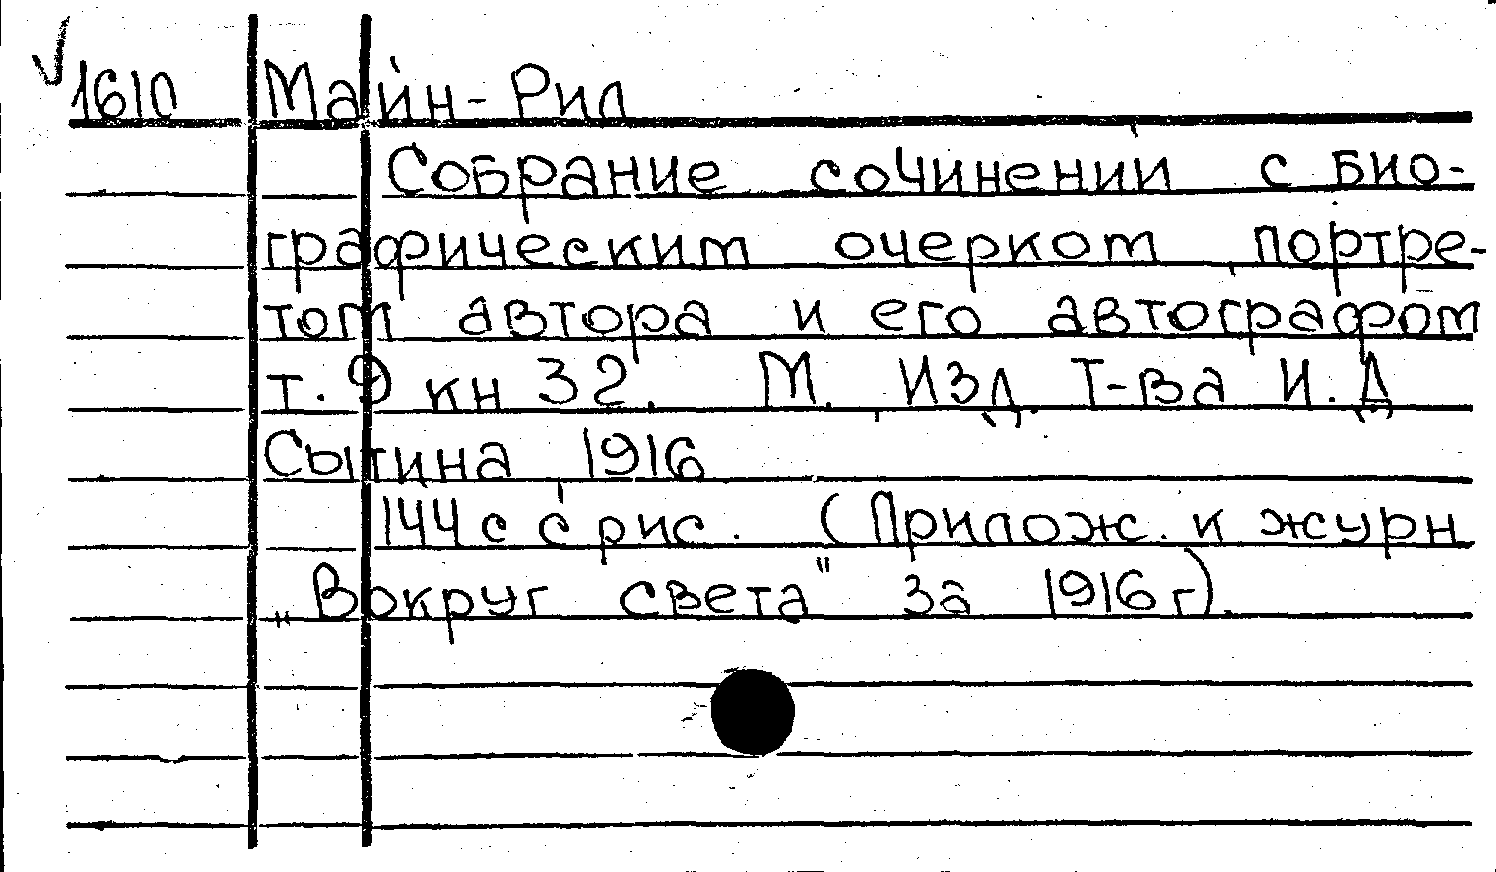 1610 Майн-Рид
Собрание сочинений с био-
графическим очерком портре-
том автора и его автографом
т. 9 кн 32. М. Изд. Т-ва И.Д
Сытина 1916
144 с с рис. (Прилож. к журн
„Вокруг света" за 1916 г).